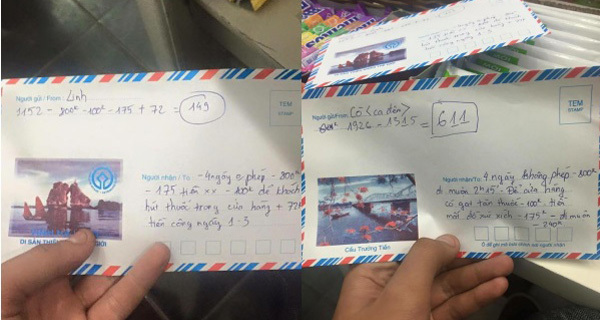 Người gửi / From: Linh
1152 - 800k - 100k - 175 + 72 = 149
TEM
STAMP
Người nhận / To: -4 ngày o phép - 800k
- 175 tiền xx - 100k để khách
hút thuốc trong cửa hàng + 72
tiền công ngày 1-3
DI SẢN THIÊN
Người gửi/From: Cô
1926 - 1315 = 611
TEM
STAMP
Người nhận/To: 4 ngày không phép - 800k
đi muộn 2th 15'. Để cửa hàng
có gạt tàn thuốc - 100k. tiền
mất đồ xúi xích - 175k - đi muộn
- 240k
Cầu Trường Tiền